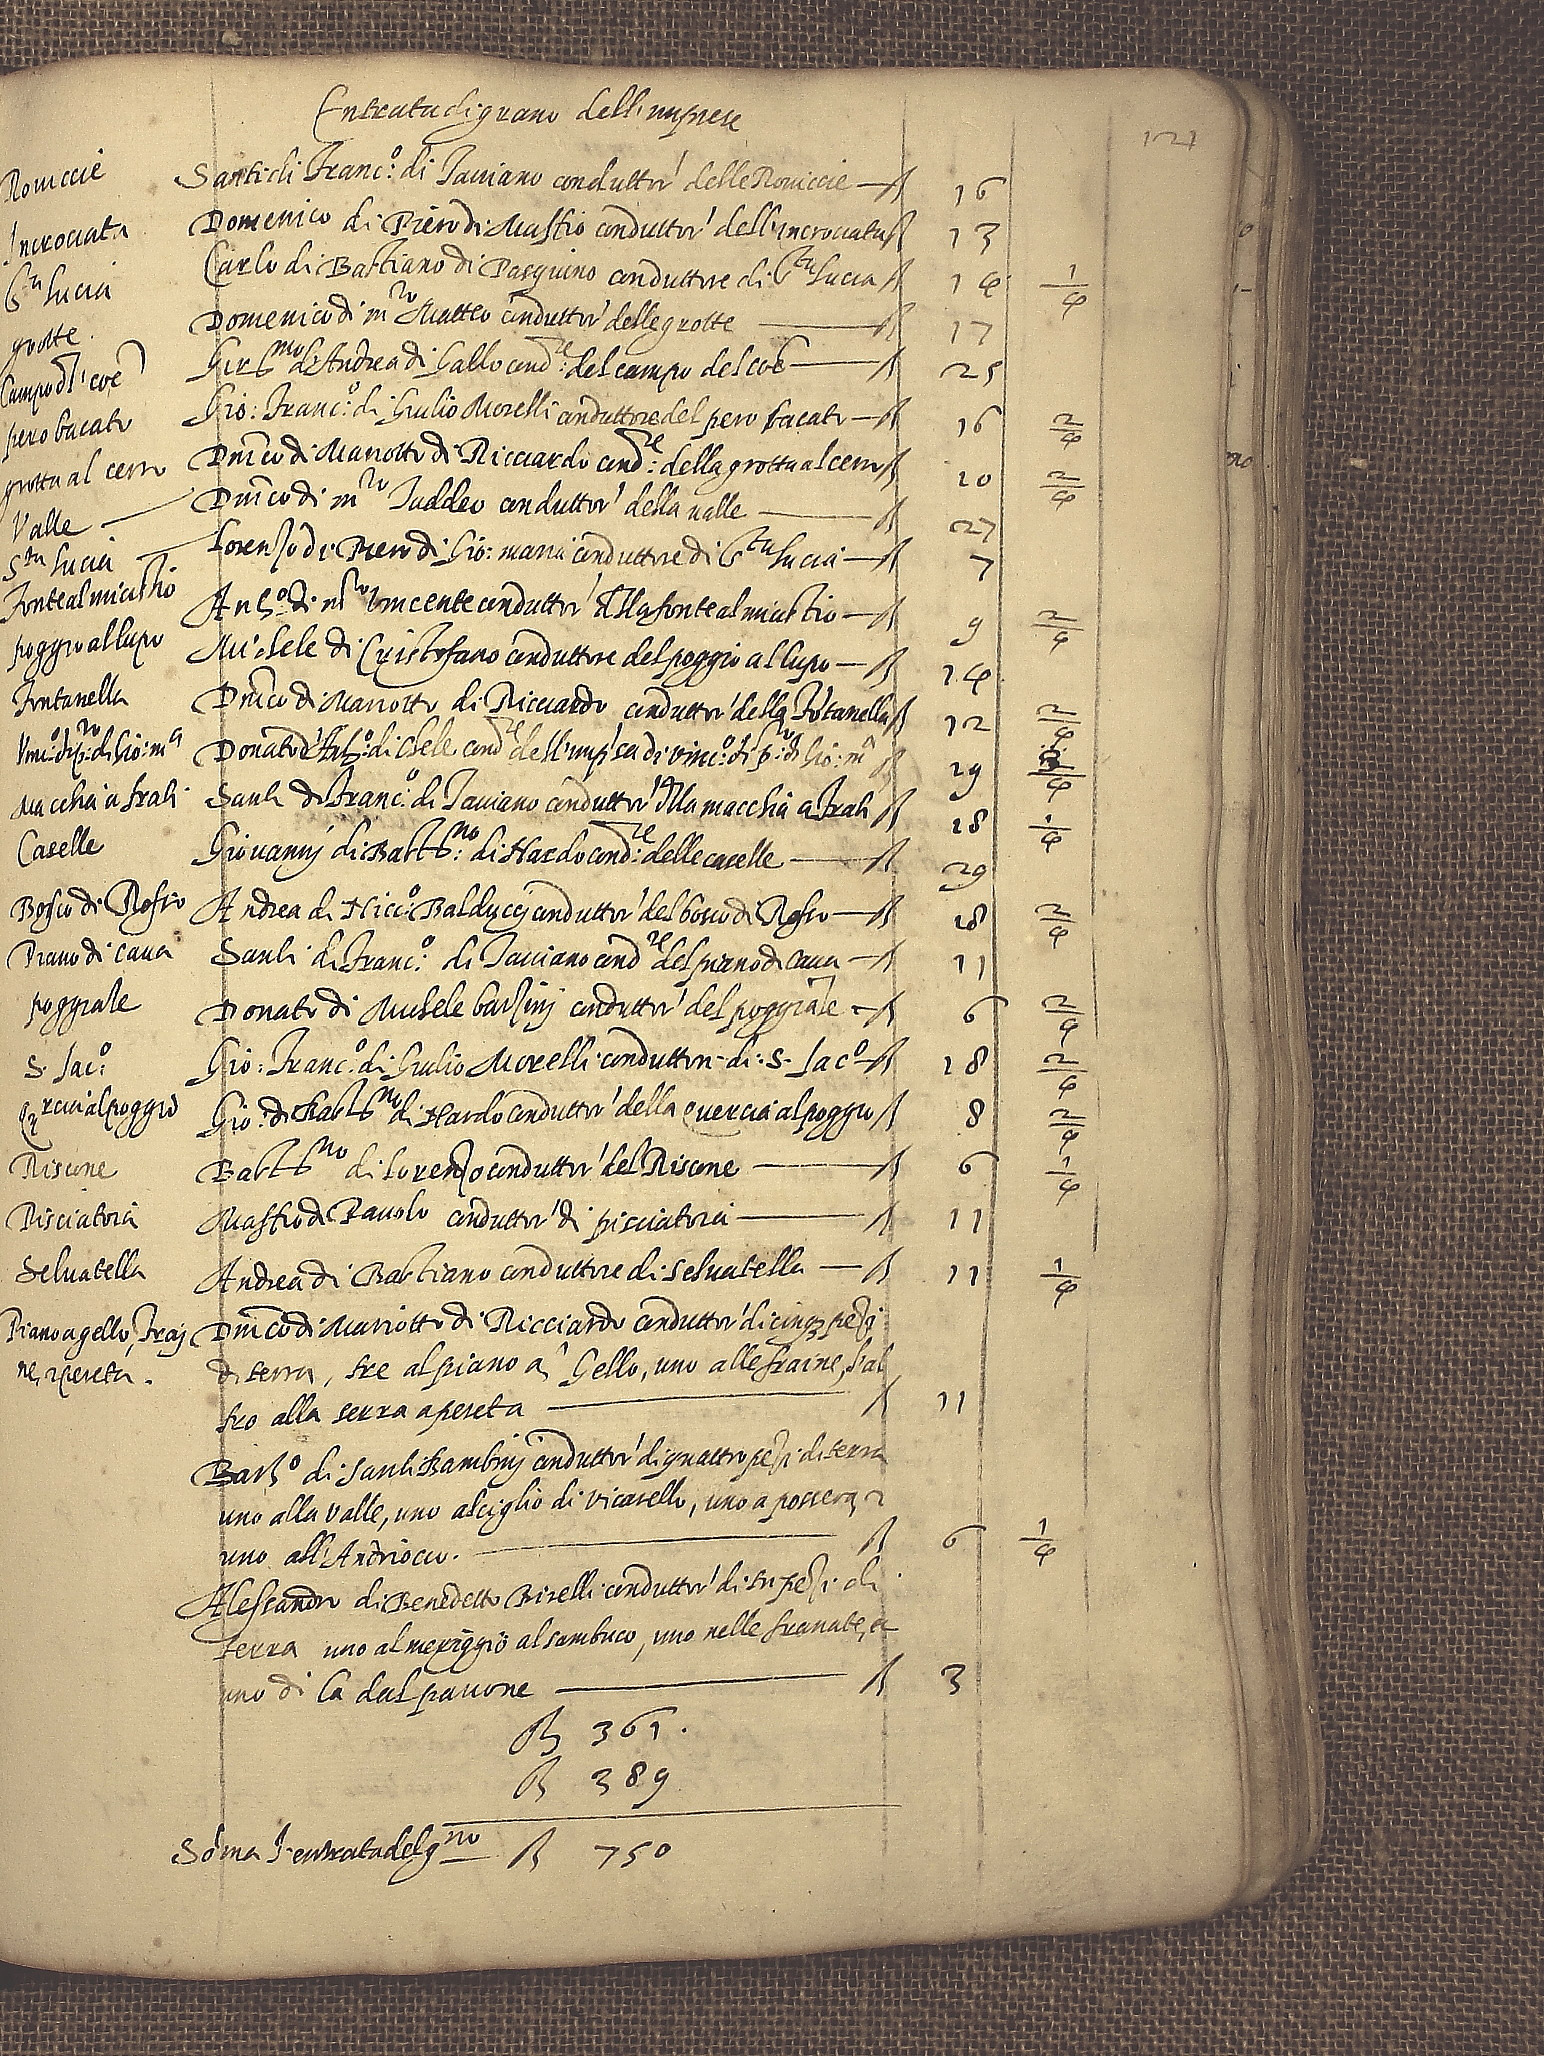 Entrata di grano dell'imprese
121
Rouiccie Santi di Franc:º di Tauiano conduttor' delle Rouiccie 16
Incrociata Domenico di Piero di Maffio conduttor' dell'incrociata 13
Sta Lucia Carlo di Bastiano di Pasquino conduttore di Sta Lucia 14 1/4
grotte. Domenico di mro Matteo conduttor' delle grotte 17
Campo di Gallo cond:re del campo del 25
pero bacato Gio: Franc:º di Giulio Morelli conduttore del pero bacato 16 2/4
grotta al cerro Dnico di Mariotto di Ricciardo cond:re della grotta al cerro 10 2/4
Valle Dnico di mro Taddeo conduttor' della ualle 27
Sta Lucia Lorenzo di Piero di Gio: maria conduttore di Sta Lucia 7
Fonte al mistio Ant:º di mro Vincente conduttor' della fonte al 9 2/4
poggio al lupo Michele di Cristofano conduttore del poggio al lupo 14
Fontanella Dnico di Mariotto di Ricciardo conduttor' della Fotanella 12 2/4
Vinc:º di Gio: mª Donato d'Ant:º di Chele cond:re dell'impsa di vinc:º di Gio: mª 19
Macchia a frati Santi di Franc:º di Tauiano conduttor' dlla macchia a frati 18 1/4
Caselle Giouannj di Bartmo: di Nardo cond:re delle caselle 29
Bosco di Rosso Andrea di Nicc:º Balduccj conduttor' del bosco di Rosso 18 2/4
Piano di caua Santi di Franc:º di Tauiano condre del piano di caua 11
poggiale Donato di Michele conduttor' del poggiale 6 2/4
S. Jac:º Gio: Franc:º di Giulio Morelli conduttor di S. Jacº 18 2/4
Quercia al poggio Gio: di Bartmo di Nardo conduttor' della quercia al poggio 8 2/4
Riscone Bartmo di Lorenzo conduttor' del Riscone 6 1/4
Pisciatoia Maffio di Pauolo conduttor' di pisciatoia 11
Seluatella Andrea di Bastiano conduttore di seluatella 11 1/4
Piano a gello, Fraj Dnico di Mariotto di Ricciardo conduttor' di cinq pezi
ne, pereta. di terra, tre al piano a' Gello, uno alle fraine, l'al
tro alla serra a pereta 11
Bartº di Santi Bambinj conduttor' di quattro pezi di terra
uno alla Valle, uno al ciglio di vicasello, uno a
uno all'Andriocco. 6 1/4
Alessandro di Benedetto Birelli conduttor' di tre pezi di
terra uno al meriggio al sambuco, uno nelle franate, et
uno di la dal pauone 3
361.
389
Soma l'entrata del gno 750